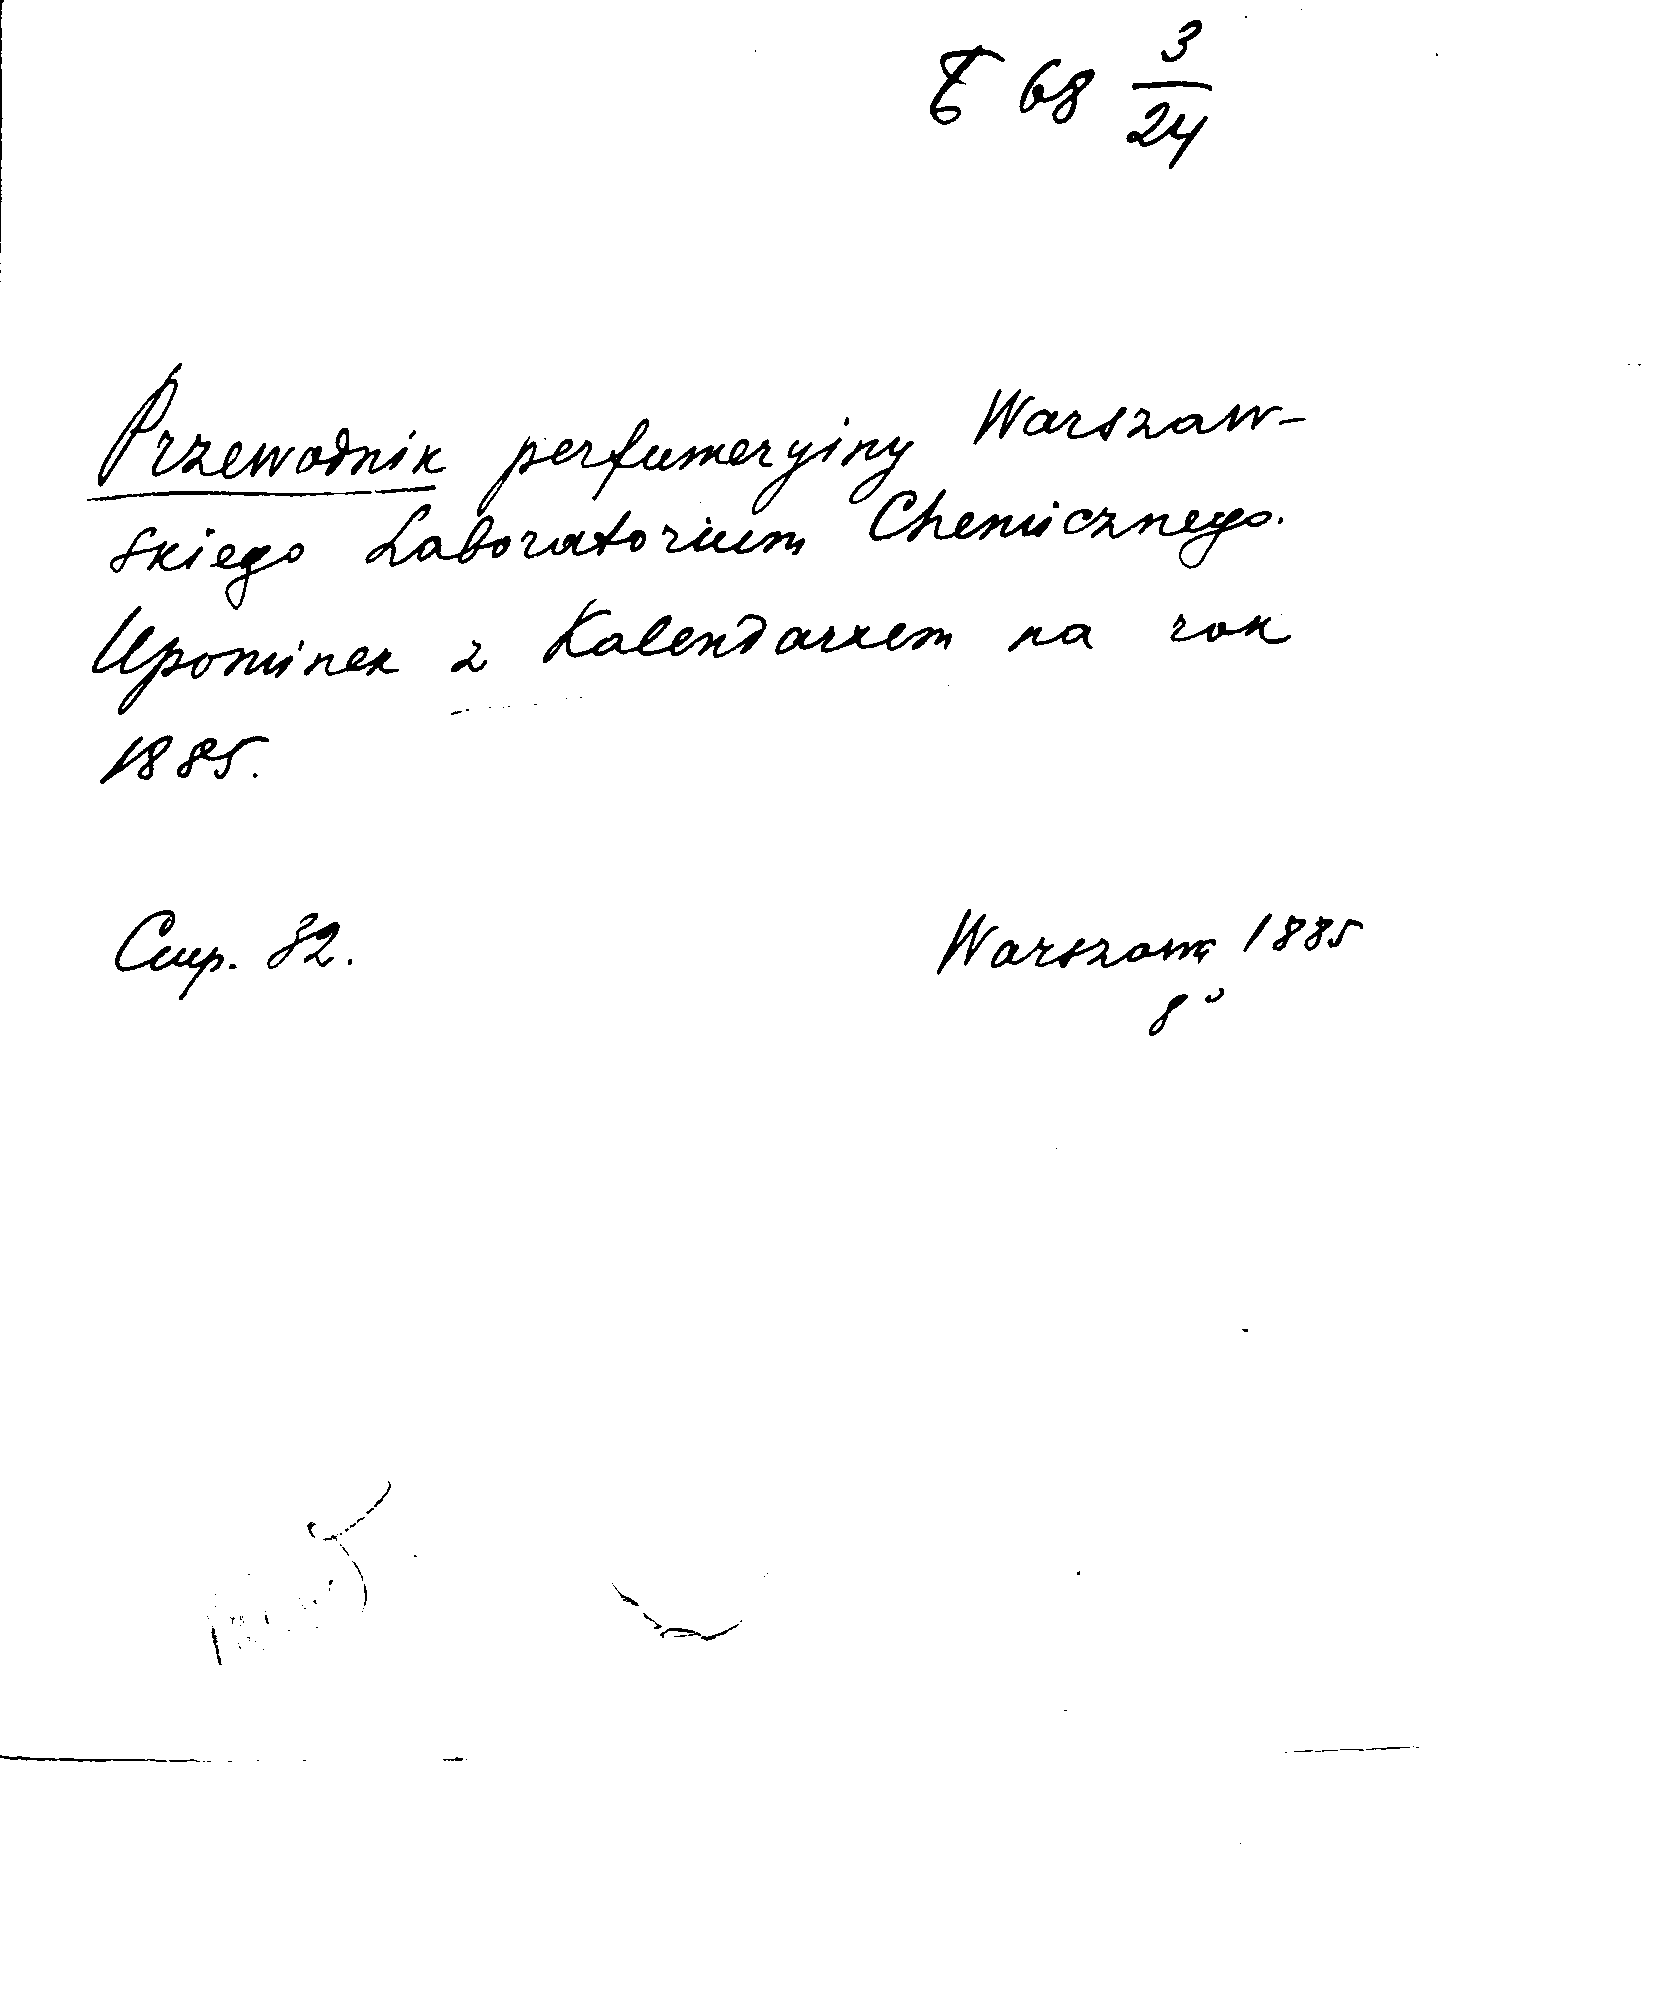 Ъ 68 3/24
Przewodnik perfumeryjny Warszaw-
skiego Laboratorium Chemicznego.
Upominek z Kalendarzem na rok
1885.
Стр. 32.
Warszawa 1885
8°